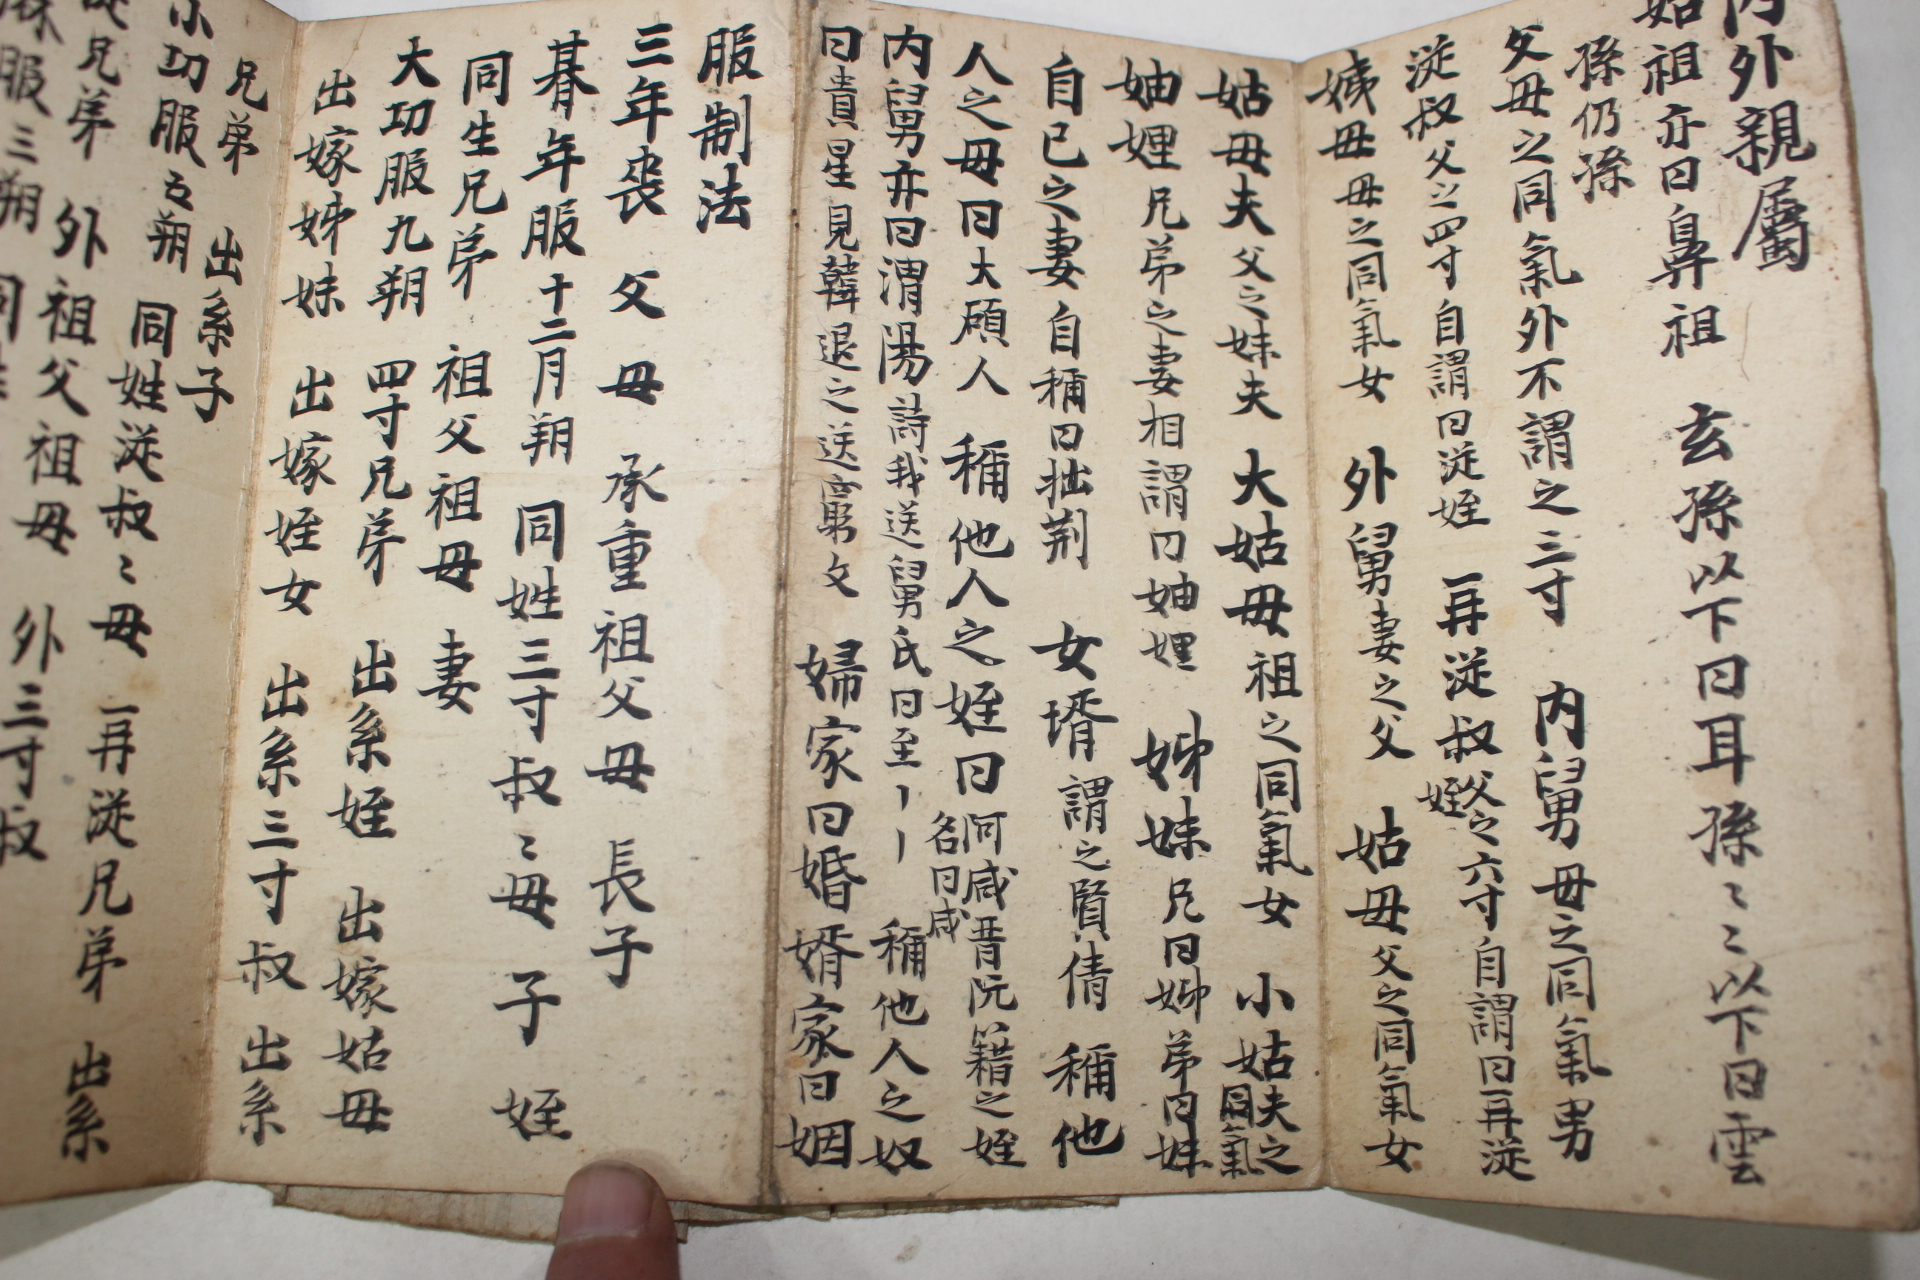 內外親屬
始祖亦曰鼻祖 玄孫以下曰耳孫〻〻以下曰雲
孫仍孫
父母之同氣外不謂之三寸 內舅母之同氣男
從叔父之四寸自謂曰從姪 再從叔父之六寸自謂曰再從
姪
姨母母之同氣女 外舅妻之父 姑母父之同氣女
姑母夫父之妹夫 大姑母祖之同氣女 小姑夫之
同氣
妯娌兄弟之妻相謂曰妯娌 姊妹兄曰姊弟曰妹
自己之妻自稱曰拙荊 女壻謂之賢倩 稱他
人之母曰大碩人 稱他人之姪曰阿咸晋阮籍之姪
名曰咸
內舅亦曰渭陽詩我送舅氏曰至〡〡 稱他人之奴
曰貴星見韓退之送窮文 婦家曰婚婿家曰姻
服制法
三年喪 父母 承重祖父母 長子
朞年服十二月朔 同姓三寸叔〻母 子 姪
同生兄弟 祖父祖母 妻
大功服九朔 四寸兄弟 出系姪 出嫁姑母
出嫁姊妹 出嫁姪女 出系三寸叔 出系
兄弟 出系子
小功服五朔 同姓從叔〻母 再從兄弟 出系
從兄弟 外祖父祖母 外三寸叔
服三朔